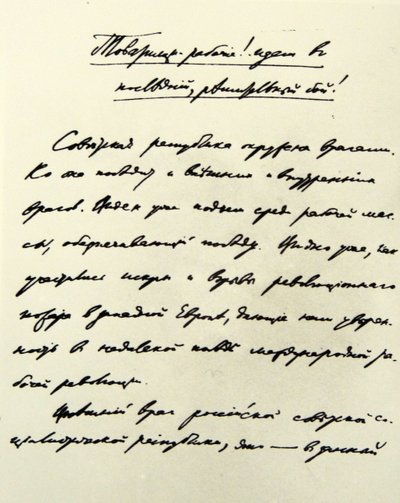 Товарищи-рабочие! Идем в
последний, решительный бой!
Советская республика окружена врагами.
Но она победит и внешних и внутренних
врагов. Виден уже подъем среди рабочей мас-
сы, обеспечивающий победу. Видно уже, как
участились искры и взрывы революционного
пожара в западной Европе, дающие нам уверен-
ность в недалекой победе международной ра-
бочей революции.
Внешний враг российской советской со-
циалистической республики, это — в данный